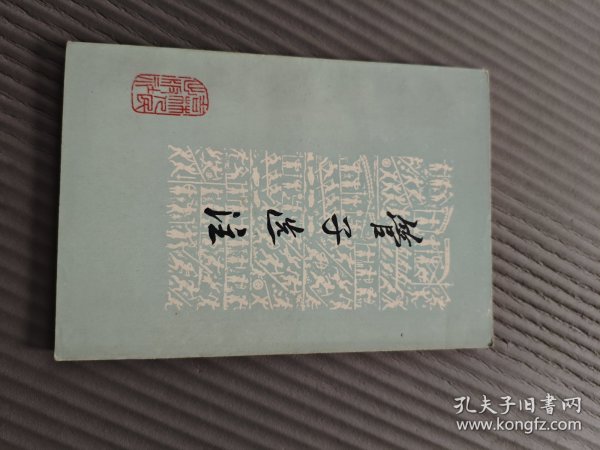 管子选注
孔夫子旧书网
www.kongfz.com